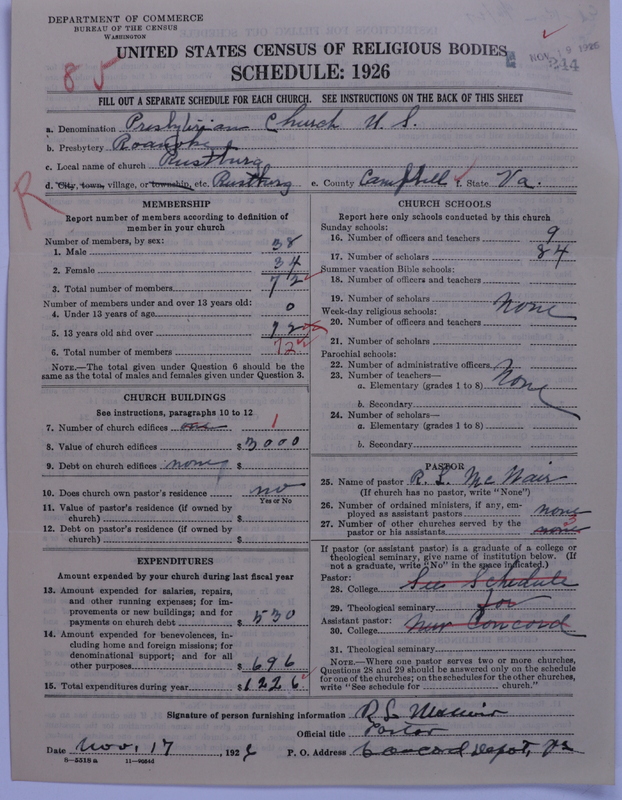 DEPARTMENT OF COMMERCE
BUREAU OF THE CENSUS
WASHINGTON
UNITED STATES CENSUS OF RELIGIOUS BODIES
NOV 19 1926
244
85
SCHEDULE: 1926
FILL OUT A SEPARATE SCHEDULE FOR EACH CHURCH. SEE INSTRUCTIONS ON THE BACK OF THIS SHEET
a. Denomination Presbyterian Church U.S.
b. Presbytery Roanoke
c. Local name of church Rustburg
d. City, town, village, or township, etc. Rustburg e. County Campbell f. State Va.
R
MEMBERSHIP
Report number of members according to definition of
member in your church
Number of members, by sex:
1. Male 38
2. Female 34
3. Total number of members 72
Number of members under and over 13 years old:
4. Under 13 years of age 0
5. 13 years old and over 72
6. Total number of members 72
NOTE.—The total given under Question 6 should be the
same as the total of males and females given under Question 3.
CHURCH BUILDINGS
See instructions, paragraphs 10 to 12
7. Number of church edifices one 1
8. Value of church edifices $3000
9. Debt on church edifices none $
10. Does church own pastor's residence no
Yes or No
11. Value of pastor's residence (if owned by
church) $
12. Debt on pastor's residence (if owned by
church) $
EXPENDITURES
Amount expended by your church during last fiscal year
13. Amount expended for salaries, repairs,
and other running expenses; for im-
provements or new buildings; and for
payments on church debt $ 530
14. Amount expended for benevolences, in-
cluding home and foreign missions; for
denominational support; and for all
other purposes $ 696
15. Total expenditures during year $1226
CHURCH SCHOOLS
Report here only schools conducted by this church
Sunday schools:
16. Number of officers and teachers 9
17. Number of scholars 84
Summer vacation Bible schools:
18. Number of officers and teachers
19. Number of scholars none
Week-day religious schools:
20. Number of officers and teachers
21. Number of scholars
Parochial schools:
22. Number of administrative officers none
23. Number of teachers—
a. Elementary (grades 1 to 8)
b. Secondary
24. Number of scholars—
a. Elementary (grades 1 to 8)
b. Secondary
PASTOR
25. Name of pastor R. L. McNair
(If church has no pastor, write "None")
26. Number of ordained ministers, if any, em-
ployed as assistant pastors none
27. Number of other churches served by the
pastor or his assistants none 3
If pastor (or assistant pastor) is a graduate of a college or
theological seminary, give name of institution below. (If
not a graduate, write "No" in the space indicated.)
Pastor:
28. College See Schedule
29. Theological seminary for
Assistant pastor:
30. College New Concord
31. Theological seminary
NOTE.—Where one pastor serves two or more churches,
Questions 28 and 29 should be answered only on the schedule
for one of the churches; on the schedules for the other churches,
write "See schedule for church."
Signature of person furnishing information R L McNair
Official title Pastor
Date Nov. 17, 1926 P. O. Address Concord Depot, Va
8—5518 a 11—9054d